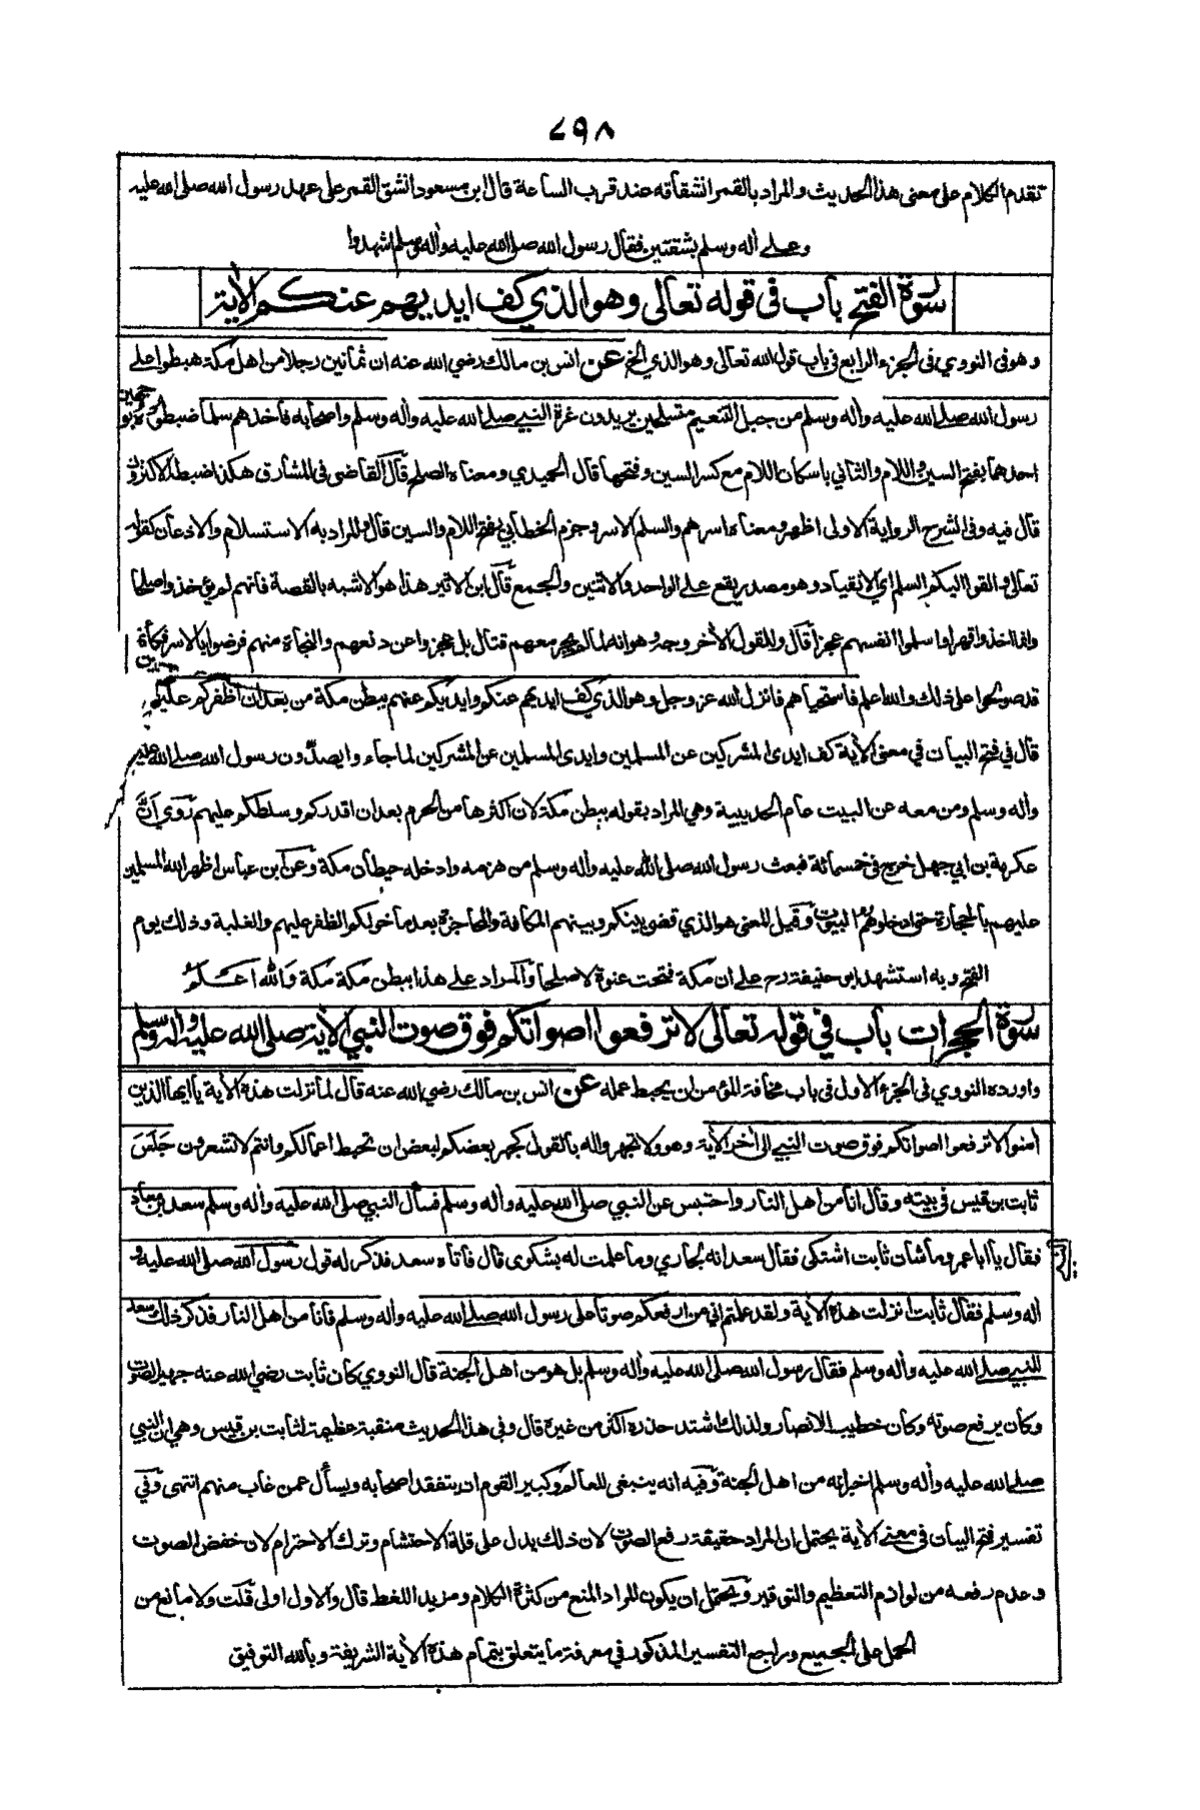 ٧٩٨
تقدم الكلام على معنى هذا الحديث والمراد بالقمر انشقاقه عند قرب الساعة قال ابن مسعود انشق القمر على عهد رسول الله صلى الله عليه
وعلى أله وسلم بشقتين فقال رسول الله صلى الله عليه وأله وسلم اشهدوا
سورة الفتح باب فى قوله تعالى وهو الذي كف ايديهم عنكم الأية
وهو فى النووي فى الجزء الرابع فى باب قول الله تعالى وهو الذي الخ عن انس بن مالك رضي الله عنه ان ثمانين رجلا من اهل مكة هبطوا على
رسول الله صلى الله عليه وأله وسلم من جبل التنعيم متسلحين يريدون غرة النبي صلى الله عليه وأله وسلم واصحابه فاخذهم سلما ضبطوه بوجهين
احدهما بفتح السين واللام والثاني باسكان اللام مع كسر السين وفتحها قال الحميدي ومعناه الصلح قال القاضى فى المشارق هكذا ضبطه الاكثرون
قال فيه وفى الشرح الرواية الاولى اظهر ومعناه اسرهم والسلم الاسر وجزم الخطابي بفتح اللام والسين قال والمراد به الاستسلام والاذعان كقوله
تعالى والقوا اليكم السلم اي الانقياد وهو مصدر يقع على الواحد والاثنين والجمع قال ابن الاثير هذا هو الاشبه بالقصة فانهم لم يؤخذوا صلحا
وانما اخذوا قهرا واسلموا انفسهم عجزا قال وللقول الأخر وجه وهو انه لما لم يجر معهم قتال بل عجزوا عن دفعهم والنجاة منهم فرضوا بالاسر فكأنهم
قد صولحوا على ذلك والله اعلم فاستحياهم فانزل الله عز وجل وهو الذي كف ايديهم عنكم وايديكم عنهم ببطن مكة من بعد ان اظفركم عليهم
قال في فتح البيان في معنى الأية كف ايدى المشركين عن المسلمين وايدى المسلمين عن المشركين لما جاءوا يصدّون رسول الله صلى الله عليه
وأله وسلم ومن معه عن البيت عام الحديبية وهي المراد بقوله ببطن مكة لان اكثرها من الحرم بعد ان اقدركم وسلطكم عليهم رُوي أنَّ
عكرمة بن ابي جهل خرج فى خمسمائة فبعث رسول الله صلى الله عليه وأله وسلم من هزمه وادخله حيطان مكة وعن ابن عباس اظهر الله المسلمين
عليهم بالحجارة حتى ادخلوهم البيوت وقيل المعنى هو الذي قضى بينكم وبينهم المكافة والمحاجزة بعد ما خولكم الظفر عليهم والغلبة وذلك يوم
الفتح وبه استشهد ابو حنيفة رح على ان مكة فتحت عنوة لا صلحا والمراد على هذا ببطن مكة مكة والله اعلم
سورة الحجرات باب في قوله تعالى لا ترفعوا اصواتكم فوق صوت النبي الأية صلى الله عليه وأله وسلم
واورده النووي فى الجزء الاول فى باب مخافة المؤمن ان يحبط عمله عن انس بن مالك رضي الله عنه قال لما نزلت هذه الأية يا ايها الذين
امنوا لا ترفعوا اصواتكم فوق صوت النبي الى أخر الأية وهو ولا تجهروا له بالقول كجهر بعضكم لبعض ان تحبط اعمالكم وانتم لا تشعرون جَلَسَ
ثابت بن قيس فى بيته وقال انا من اهل النار واحتبس عن النبي صلى الله عليه وأله وسلم فسأل النبي صلى الله عليه وأله وسلم سعد بن معاذ
فقال يا ابا عمرو ما شان ثابت اشتكى فقال سعد انه لجاري وما علمت له بشكوى قال فاتاه سعد فذكر له قول رسول الله صلى الله عليه و
اله وسلم فقال ثابت انزلت هذه الأية ولقد علمتم اني من ارفعكم صوتا على رسول الله صلى الله عليه وأله وسلم فانا من اهل النار فذكر ذلك سعد
للنبي صلى الله عليه وأله وسلم فقال رسول الله صلى الله عليه وأله وسلم بل هو من اهل الجنة قال النووي كان ثابت رضي الله عنه جهير الصوت
وكان يرفع صوته وكان خطيب الانصار ولذلك اشتد حذره اكثر من غيره قال وفى هذا الحديث منقبة عظيمة لثابت بن قيس وهي ان النبي
صلى الله عليه وأله وسلم اخبر انه من اهل الجنة وفيه انه ينبغى للعالم وكبير القوم ان يتفقد اصحابه ويسأل عمن غاب منهم انتهى وفي
تفسير فتح البيان فى معنى الأية يحتمل ان المراد حقيقة رفع الصوت لان ذلك يدل على قلة الاحتشام وترك الاحترام لان خفض الصوت
وعدم رفعه من لوازم التعظيم والتوقير ويحتمل ان يكون المراد المنع من كثرة الكلام ومزيد اللغط قال والاول اولى قلت ولا مانع من
الحمل على الجميع وراجع التفسير المذكور في معرفة ما يتعلق بتمام هذه الأية الشريفة وبالله التوفيق